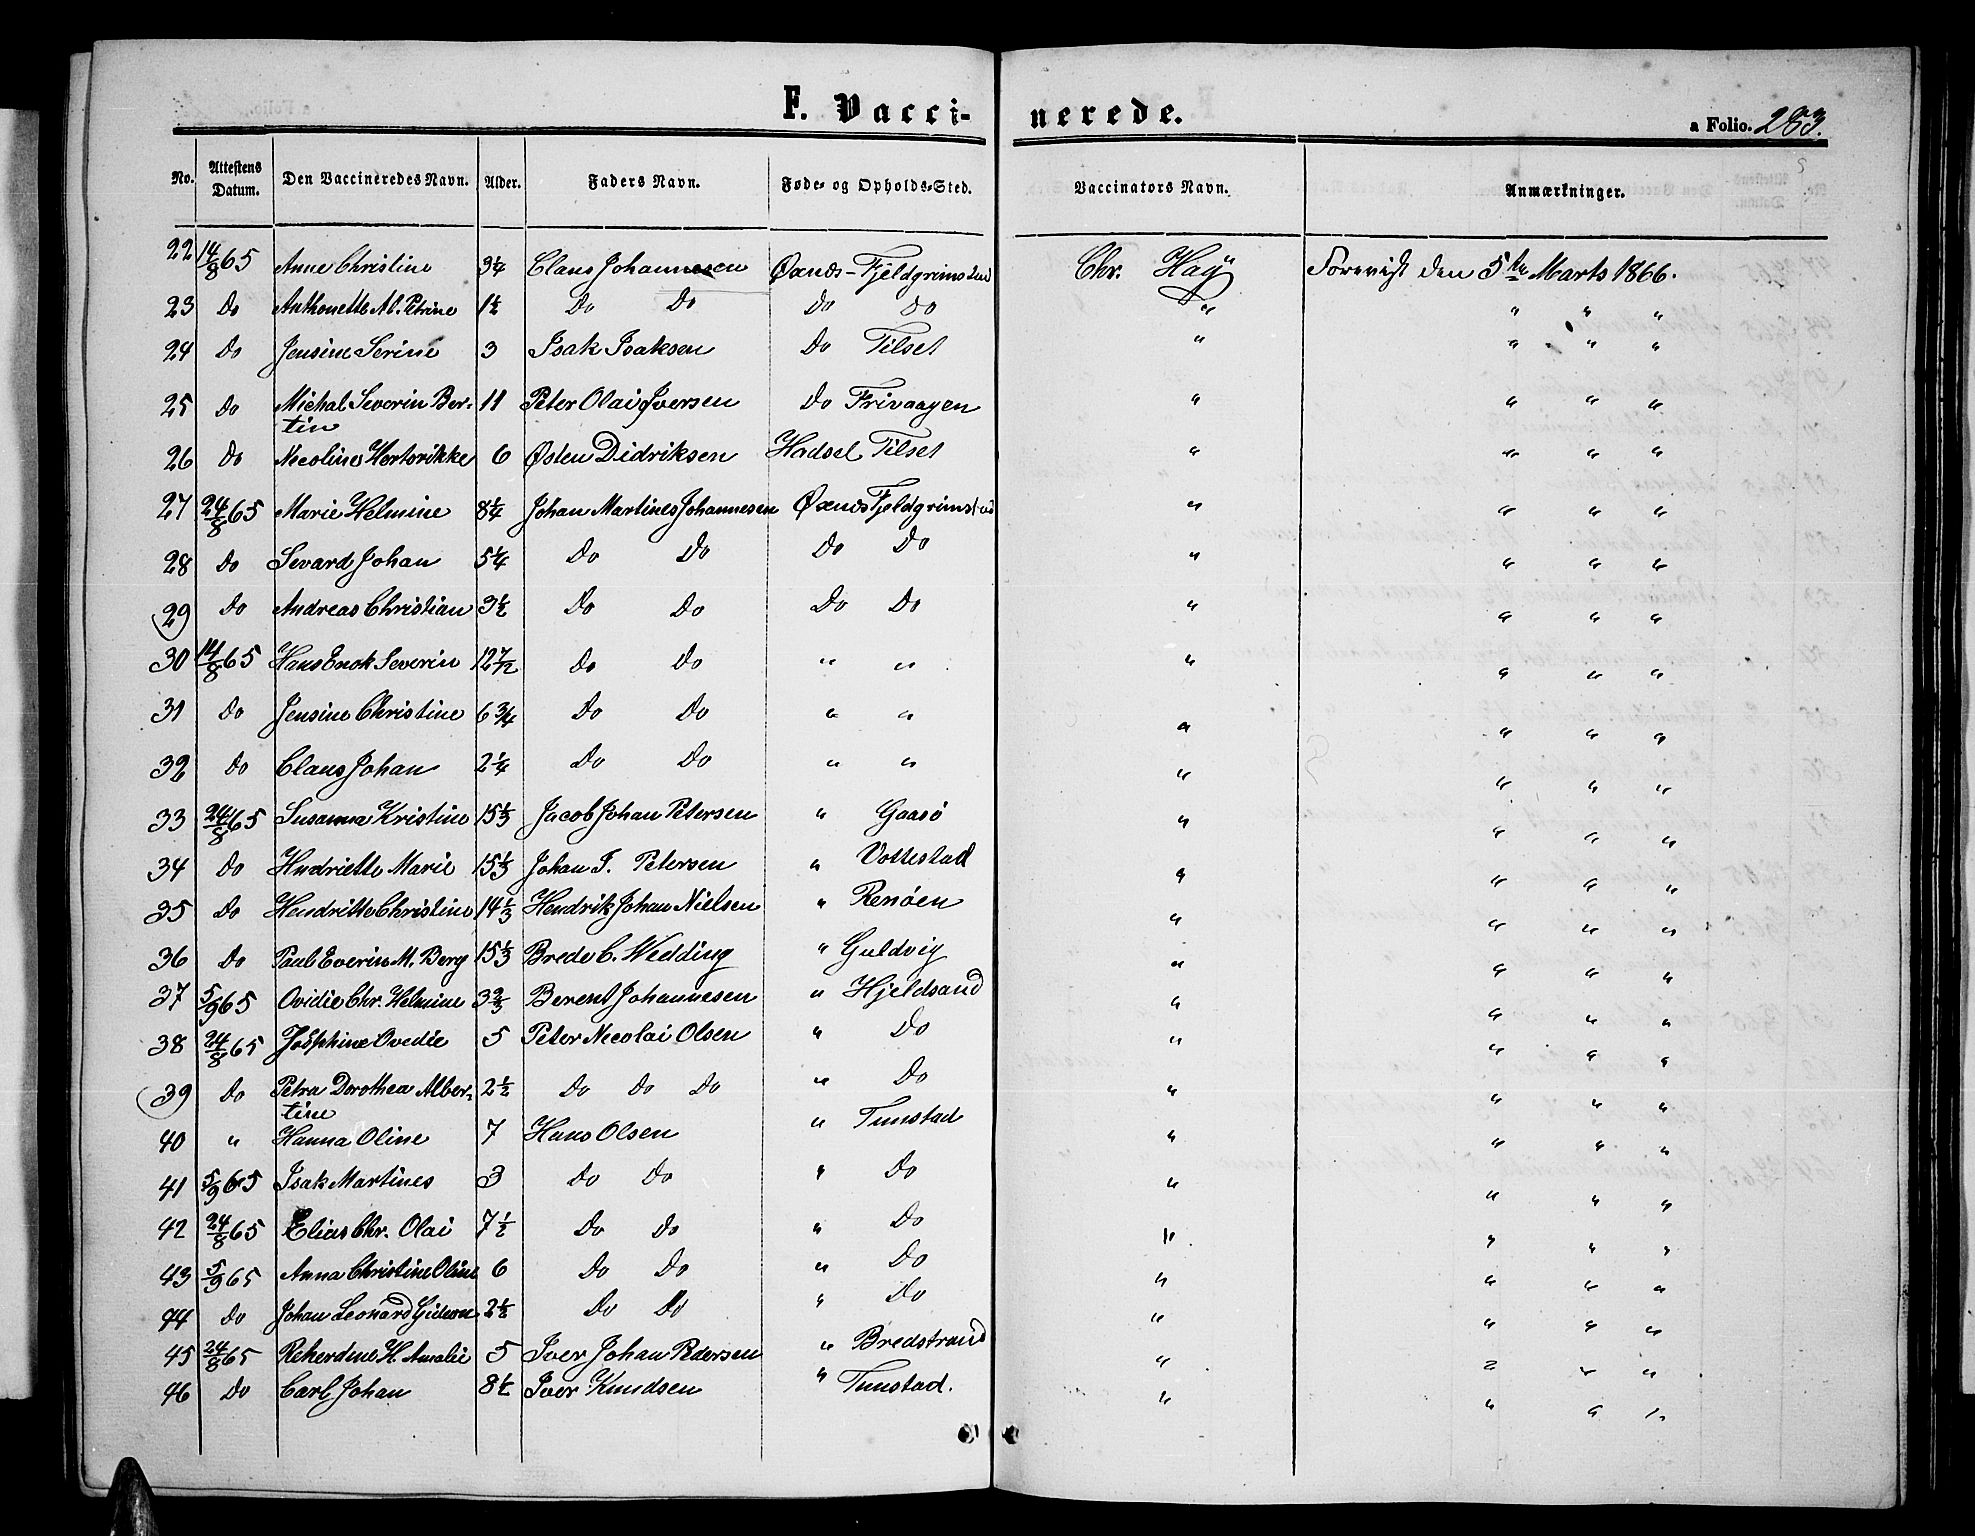 F. Vacci- nerede.
a Folio. 283.
No. Attestens Datum. Den Vaccineredes Navn. Alder. Faders Navn. Føde- og Opholds-Sted. Vaccinators Navn. Anmærkninger.
22 14/8 65 Anne Christine 3 1/4 Claus Johannesen Øxnds- Fjeldgrimstad Chr. Hay Forevist den 5te Marts 1866.
23 Do Anthonette Al. Petrine 1 1/2 Do Do Do Do " " " "
24 Do Jensine Serine 3 Isak Isaksen Do Tilset " " " "
25 Do Michal Severin Ber- 11 Peter Olai Iversen Do Frivaagen " " " "
tin
26 Do Necoline Hertvikke 6 Østen Didriksen Hadsel Tilset " " " "
27 24/8 65 Marie Helmine 8 1/4 Johan Martines Johannesen Øxnds Fjeldgrimstad " " " "
28 Do Sevard Johan 5 1/4 Do Do Do Do " " " "
29 Do Andreas Christian 3 1/2 Do Do Do Do " " " "
30 14/8 65 Hans Enok Severin 12 7/12 Do Do " " " " " "
31 Do Jensine Christine 6 3/4 Do Do " " " " " "
32 Do Claus Johan 2 1/4 Do Do " " " " " "
33 24/8 65 Susanna Kristine 15 1/3 Jacob Johan Petersen " Gaasø " " " "
34 Do Hndriette Marie 15 1/3 Johan J. Petersen " Vottestad " " " "
35 Do Hendritte Christine 14 1/3 Hendrik Johan Nielsen " Renøen " " " "
36 Do Paul Everin M. Berg 15 1/3 Brede C. Wedding " Guldvig " " " "
37 5/9 65 Ovidie Chr. Helmine 3 2/3 Berent Johannesen " Hjeldsand " " " "
38 24/8 65 Josphine Ovedie 5 Peter Necolai Olsen " Do " " " "
39 Do Petra Dorothea Alber- 2 1/2 Do Do Do " Do " " " "
tine
40 " Hanna Oline 7 Hans Olsen " Tunstad " " " "
41 5/9 65 Isak Martines 3 Do Do " Do " " " "
42 24/8 65 Elias Chr. Olai 7 1/2 Do Do " Do " " " "
43 5/9 65 Anna Christine Oline 6 Do Do " Do " " " "
44 Do Johan Leonard Gideon 2 1/2 Do Do " Do " " " "
45 24/8 65 Rekerdine H. Amalie 5 Iver Johan Pedersen " Bredstrand " " " "
46 Do Carl Johan 8 1/2 Iver Knudsen " Tunstad. " " " "